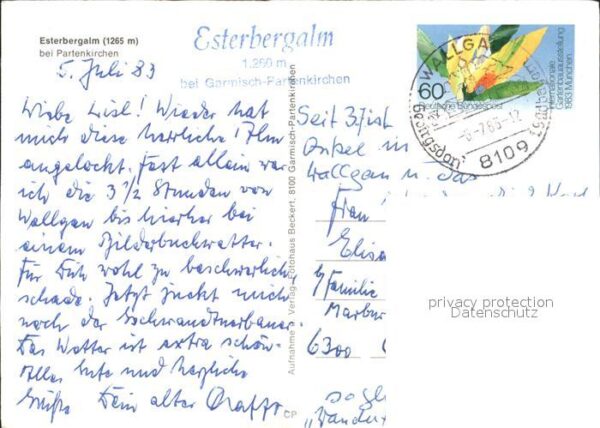 Esterbergalm (1265 m)
bei Partenkirchen
Esterbergalm
1.260 m
bei Garmisch-Partenkirchen
5. Juli 83
Liebe Lisl! Wieder hat
mich diese herrliche Alm
angelockt. Fast allein war
ich die 3 1/2 Stunden von
Wallgau bis hierher bei
einem Bilderbuchwetter.
Für Dich wohl zu beschwerlich
schade. Jetzt juckt mich
noch der
Das Wetter ist extra schön.
Alles Gute und herzliche
Grüße Dein alter
Aufnahme u. Verlag: Fotohaus Beckert, 8100 Garmisch-Partenkirchen
CP
Seit 3. ist
Onkel in
Wallgau u. das
Frau
Elisa
b/ Familie
Marbur
6300
"Wander
60
Deutsche Bundespost
Internationale
Gartenbauausstellung
1983 München
WALLGAU
-6.-7.83-12
8109
privacy protection
Datenschutz